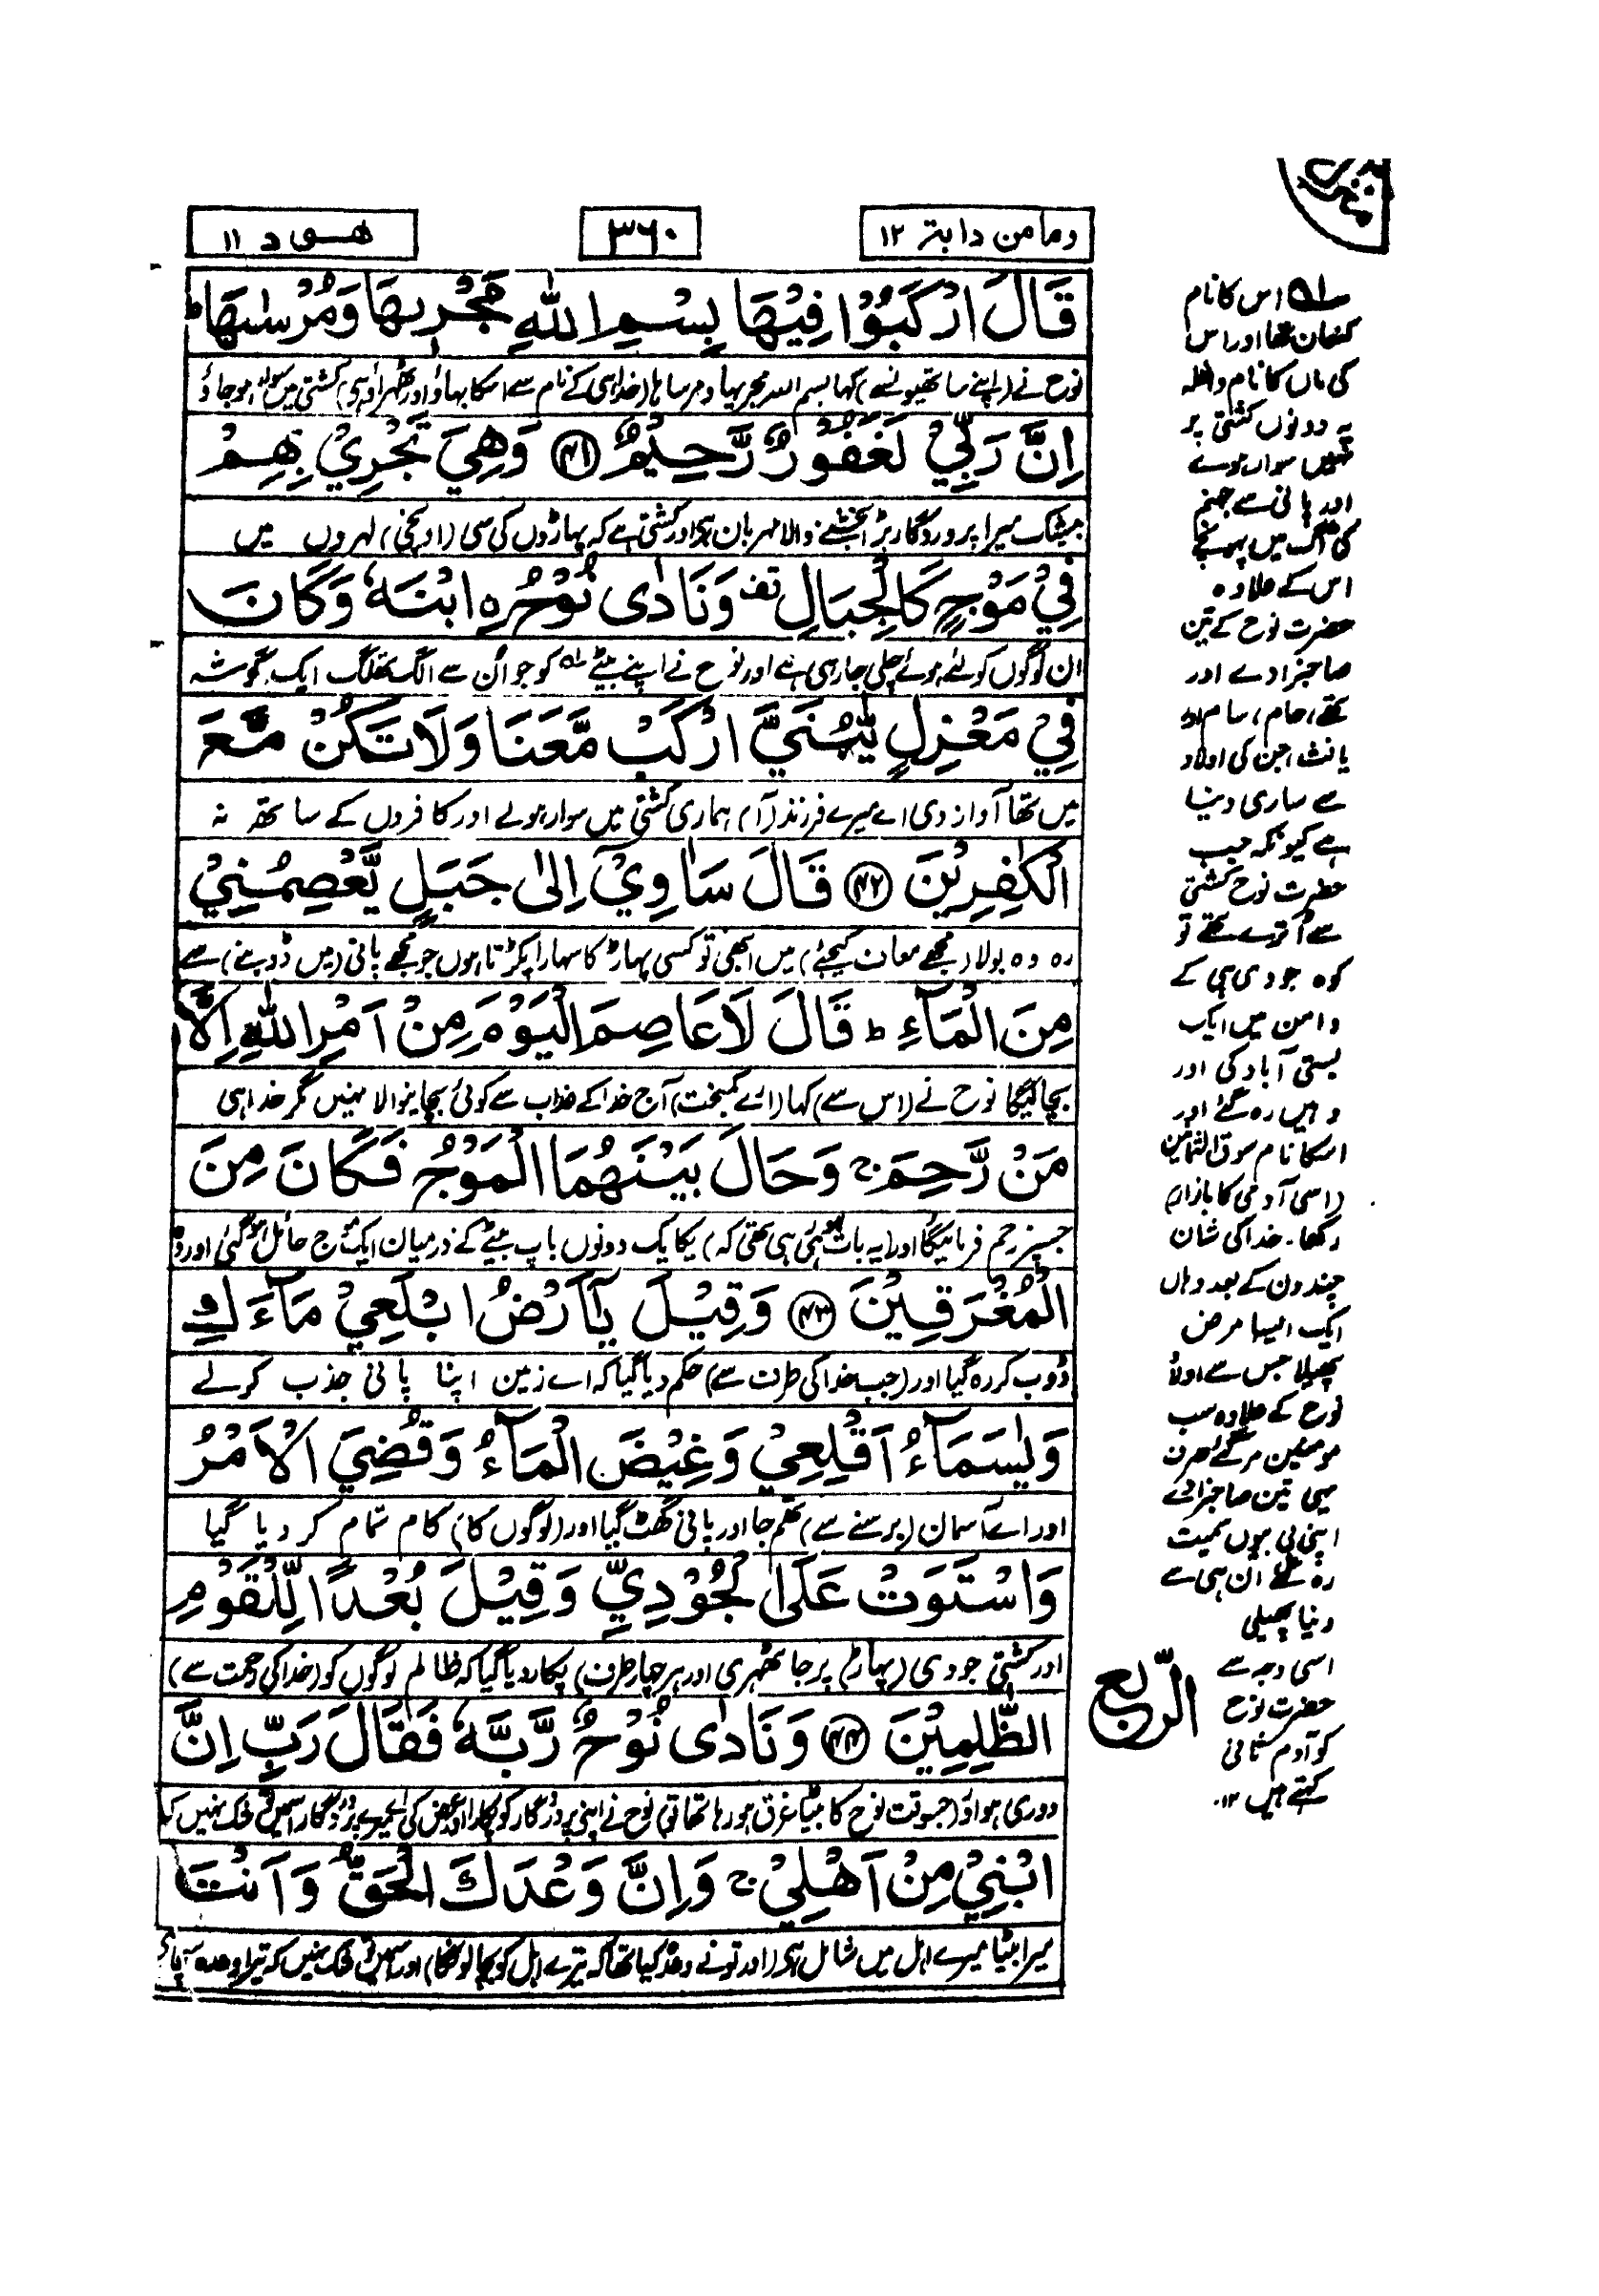 ومامن دابتر ۱۲
۳۶۰
هود ۱۱
قَالَ ارْكَبُوْا فِيْهَا بِسْمِ اللّٰهِ مَجْرٖىهَا وَمُرْسٰىهَا ؕ
نوح نے (اپنے ساتھیوں سے) کہا بسم اللہ مجریہا و مرساہا (خدا ہی کے نام سے اسکا بہاؤ اور ٹھہراؤ ہے) کشتی میں سوار ہو جاؤ
اِنَّ رَبِّيْ لَغَفُوْرٌ رَّحِيْمٌ ﴿۴۱﴾ وَهِيَ تَجْرِيْ بِهِمْ
بیشک میرا پروردگار بڑا بخشنے والا مہربان ہے اور کشتی ہے کہ پہاڑوں کی سی (اونچی) لہروں میں
فِيْ مَوْجٍ كَالْجِبَالِ قف وَنَادٰى نُوْحُ ِۨابْنَهٗ وَكَانَ
ان لوگوں کو لئے ہوئے چلی جا رہی ہے اور نوح نے اپنے بیٹے ۵۱ کو جو اُن سے الگ تھلگ ایک گوشہ
فِيْ مَعْزِلٍ يّٰبُنَيَّ ارْكَبْ مَّعَنَا وَلَا تَكُنْ مَّعَ
میں تھا آواز دی اے میرے فرزند (آ) ہماری کشتی میں سوار ہولے اور کافروں کے ساتھ نہ
الْكٰفِرِيْنَ ﴿۴۲﴾ قَالَ سَاٰوِيْٓ اِلٰى جَبَلٍ يَّعْصِمُنِيْ
رہ وہ بولا (مجھے معاف کیجئے) میں ابھی تو کسی پہاڑ کا سہارا پکڑتا ہوں جو مجھے پانی (میں ڈوبنے) سے
مِنَ الْمَآءِ ؕ قَالَ لَا عَاصِمَ الْيَوْمَ مِنْ اَمْرِ اللّٰهِ اِلَّا
بچا لیگا نوح نے (اس سے) کہا (ارے کمبخت) آج خدا کے عذاب سے کوئی بچانیوالا نہیں مگر خدا ہی
مَنْ رَّحِمَ ۚ وَحَالَ بَيْنَهُمَا الْمَوْجُ فَكَانَ مِنَ
جسپر رحم فرمائیگا اور (یہ بات ہو ہی رہی تھی کہ) یکایک دونوں باپ بیٹے کے درمیان ایک موج حائل ہو گئی اور وہ
الْمُغْرَقِيْنَ ﴿۴۳﴾ وَقِيْلَ يٰٓاَرْضُ ابْلَعِيْ مَآءَكِ
ڈوب کر رہ گیا اور (جب خدا کی طرف سے) حکم دیا گیا کہ اے زمین اپنا پانی جذب کرلے
وَيٰسَمَآءُ اَقْلِعِيْ وَغِيْضَ الْمَآءُ وَقُضِيَ الْاَمْرُ
اور اے آسمان (برسنے سے) تھم جا اور پانی گھٹ گیا اور (لوگوں کا) کام تمام کر دیا گیا
وَاسْتَوَتْ عَلَى الْجُوْدِيِّ وَقِيْلَ بُعْدًا لِّلْقَوْمِ
اور کشتی جودی (پہاڑ) پر جا ٹھہری اور (ہر چہار طرف) پکار دیا گیا کہ ظالم لوگوں کو (خدا کی رحمت سے)
الظّٰلِمِيْنَ ﴿۴۴﴾ وَنَادٰى نُوْحٌ رَّبَّهٗ فَقَالَ رَبِّ اِنَّ
دوری ہو اور (جسوقت نوح کا بیٹا غرق ہو رہا تھا تو) نوح نے اپنے پروردگار کو پکارا اور عرض کی اے میرے پروردگار اسمیں تو شک نہیں کہ
ابْنِيْ مِنْ اَهْلِيْ ۚ وَاِنَّ وَعْدَكَ الْحَقُّ وَاَنْتَ
میرا بیٹا میرے اہل میں شامل ہے (اور تو نے وعدہ کیا تھا کہ تیرے اہل کو بچا لونگا) اور اسمیں شک نہیں کہ تیرا وعدہ سچا ہے
۵۱ اس کا نام
کنعان تھا اور اس
کی ماں کا نام واعلہ
یہ دونوں کشتی پر
نہیں سوار ہوئے
اور پانی سے جہنم
کی آگ میں پہونچے
اس کے علاوہ
حضرت نوح کے تین
صاحبزادے اور
تھے، حام، سام اور
یافث جن کی اولاد
سے ساری دنیا
ہے کیونکہ جب
حضرت نوح کشتی
سے اُترے تھے تو
کوہ جودی ہی کے
دامن میں ایک
بستی آباد کی اور
وہیں رہ گئے اور
اسکا نام سوق الثمانین
(اسی آدمی کا بازار)
رکھا۔ خدا کی شان
چند دن کے بعد وہاں
ایک ایسا مرض
پھیلا جس سے اولاد
نوح کے علاوہ سب
مومنین مر گئے صرف
یہی تین صاحبزادے
اپنی بی بیوں سمیت
رہ گئے ان ہی سے
دنیا پھیلی
اسی وجہ سے
حضرت نوح
کو آدم ثانی
کہتے ہیں ۱۲.
الربع